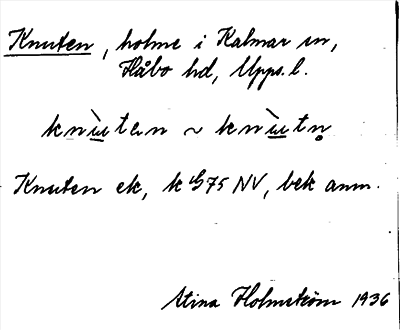 Knuten, holme i Kalmar sn,
Håbo hd, Upps. l.
Knuten ek, k G75 NV, bek anm.
Stina Holmström 1936